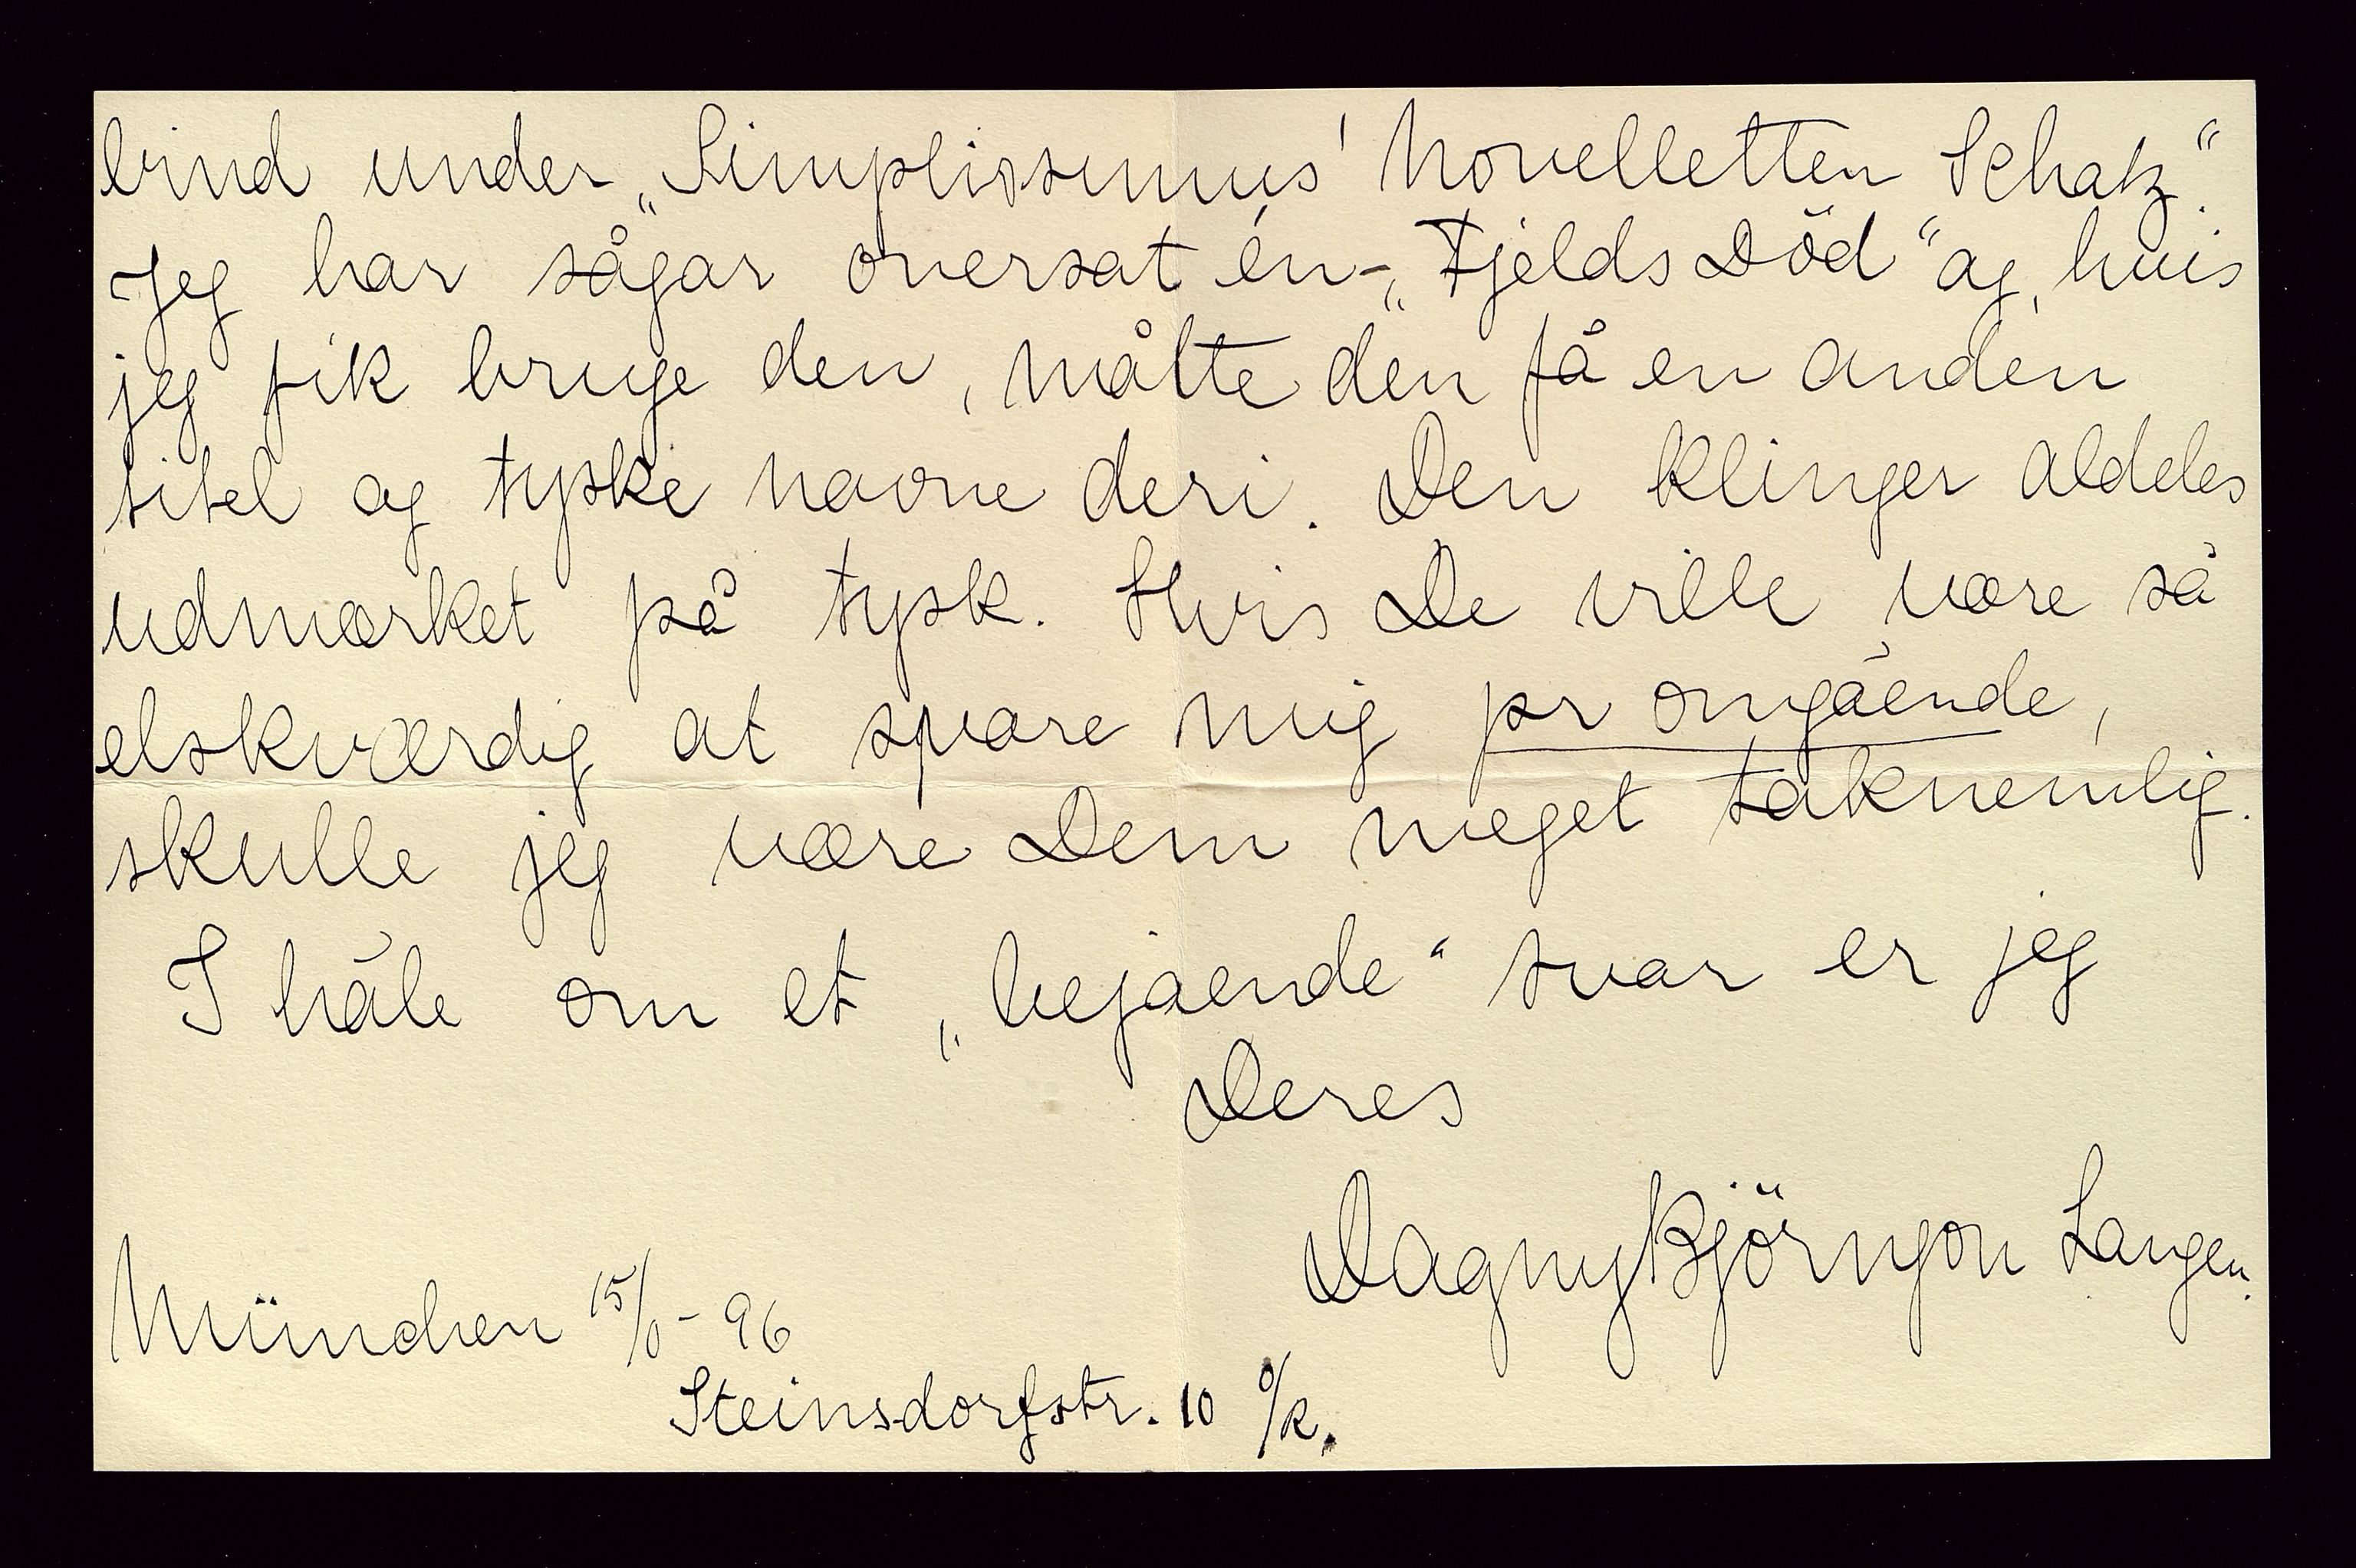 bind under „Simplissimus' Novelletten Schatz“.
Jeg har sågar oversat én - „Fjelds Död“ og, hvis
jeg fik bruge den, måtte den få en anden
titel og tyske navne deri. Den klinger aldeles
udmærket på tysk. Hvis De ville være så
elskværdig at svare mig pr omgående,
skulle jeg være Dem meget taknemlig.
I håb om et „bejaende“ svar er jeg
Deres
Dagny Björnson Langen.
München 15/ - 96
Steinsdorfstr. 10